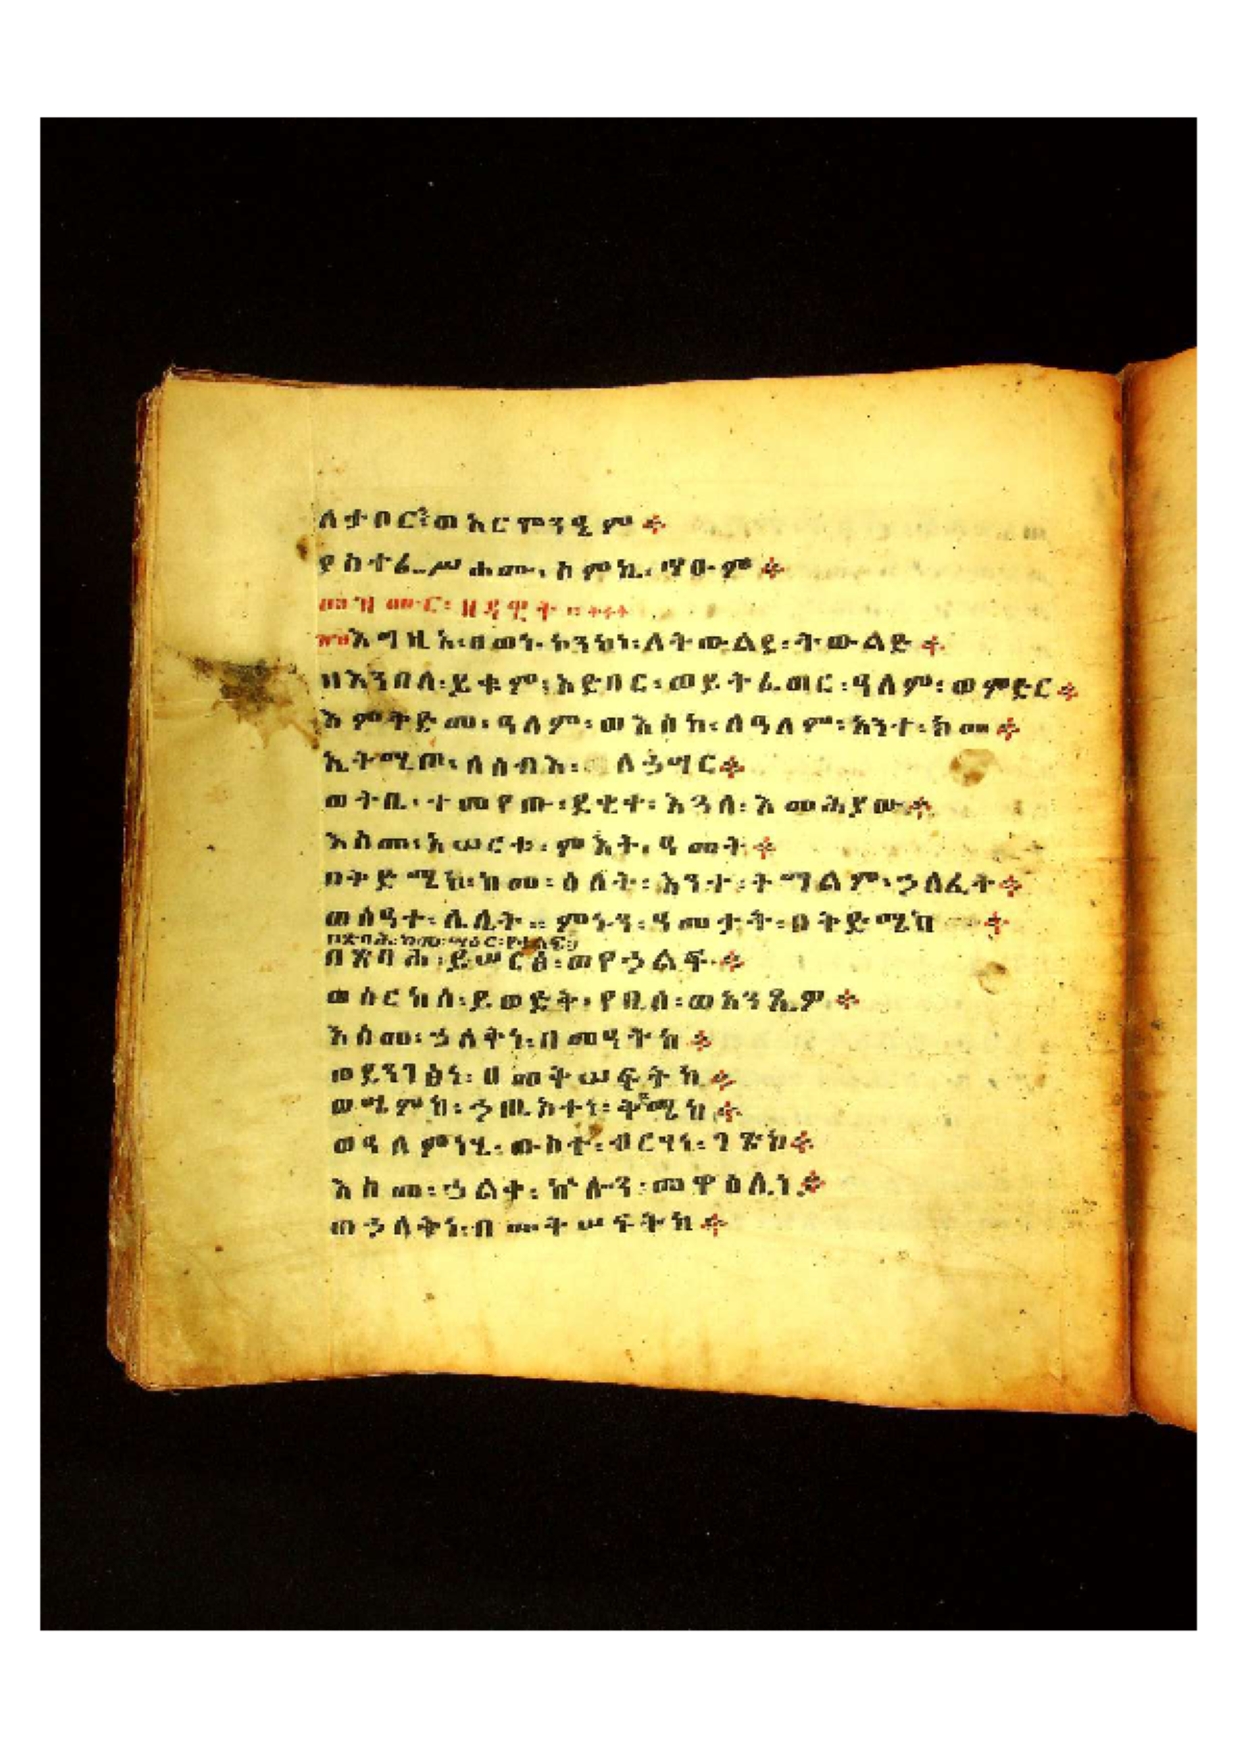 ለታቦር፡ወአርሞንዔም ።
ያስተፌሥሐሙ፡ስምከ፡ማዑም ።
መዝሙር፡ዘዳዊት ።
እግዚአ፡ፀወነ፡ኮንከነ፡ለትውልደ፡ትውልድ ።
ዘእንበለ፡ይቁም፡አድባር፡ወይትፈጠር፡ዓለም፡ወምድር ።
እምቅድመ፡ዓለም፡ወእስከ፡ለዓለም፡አንተ፡ክመ ።
ኢትሚጦ፡ለሰብእ፡ ለኃሣር ።
ወትቤ፡ተመየጡ፡ደቂቀ፡እጓለ፡እመሕያው ።
እስመ፡እሠርቱ፡ምእት፡ዓመት ።
በቅድሜከ፡ከመ፡ዕለት፡እንተ፡ትማልም፡ኃለፈት ።
ወሰዓተ፡ሌሊት ። ምኑን፡ዓመታት፡በቅድሜከ ።
በጽባሕ፡ከመ፡ሣዕር፡የኃልፍ፡
በጽባሕ፡ይሠርፅ፡ወየኃልፍ ።
ወሰርከሰ፡ይወድቅ፡የቢስ፡ወአንጺዎ ።
እስመ፡ኃለቅነ፡በመዓትከ ።
ወደንገፅነ፡በመቅሠፍትከ ።
ወሤምከ፡ኃጢአተነ፡ቅድሜከ ።
ወዓለምነሂ፡ውስተ፡ብርሃነ፡ገጽከ ።
እስመ፡ኃልቀ፡ኵሉን፡መዋዕሊነ ።
ወኃለቅነ፡በመቅሠፍትከ ።